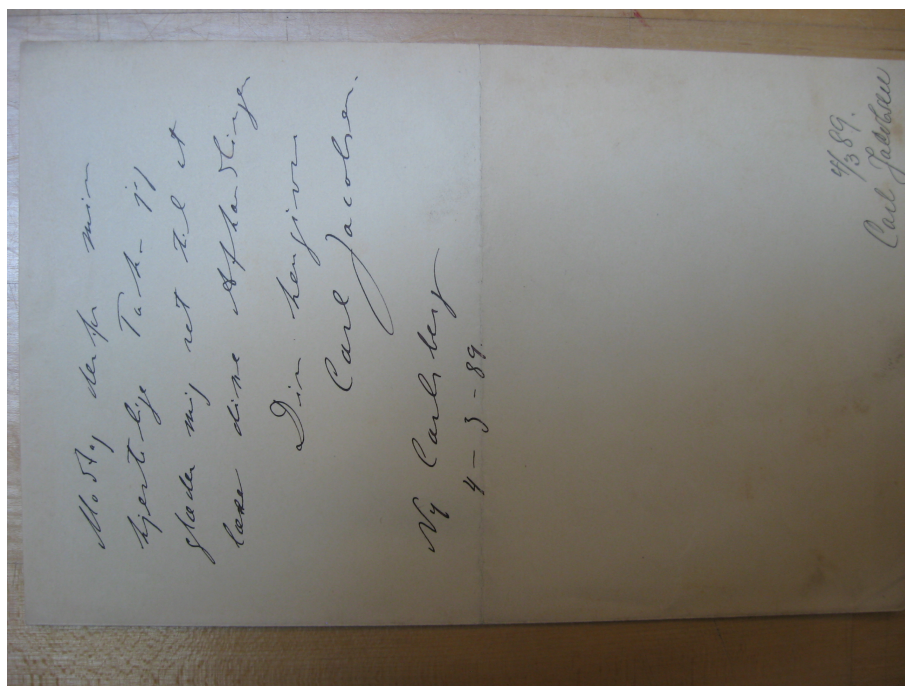 Modtag derfor min
hjertelige Tak – jeg
glæder mig ret til at
læse dine Afhandlinger
Din hengivne
Carl Jacobsen.
Ny Carlsberg
4 – 3 – 89.
4/3 89.
Carl Jacobsen